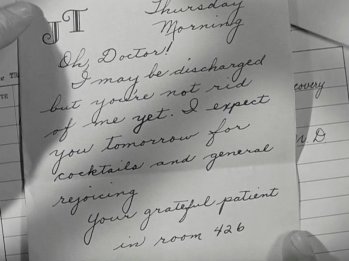 JT
Thursday
Morning
Oh, Doctor!
I may be discharged
but you're not rid
of me yet. I expect
you tomorrow for
cocktails and general
rejoicing
Your grateful patient
in room 426
covery
D